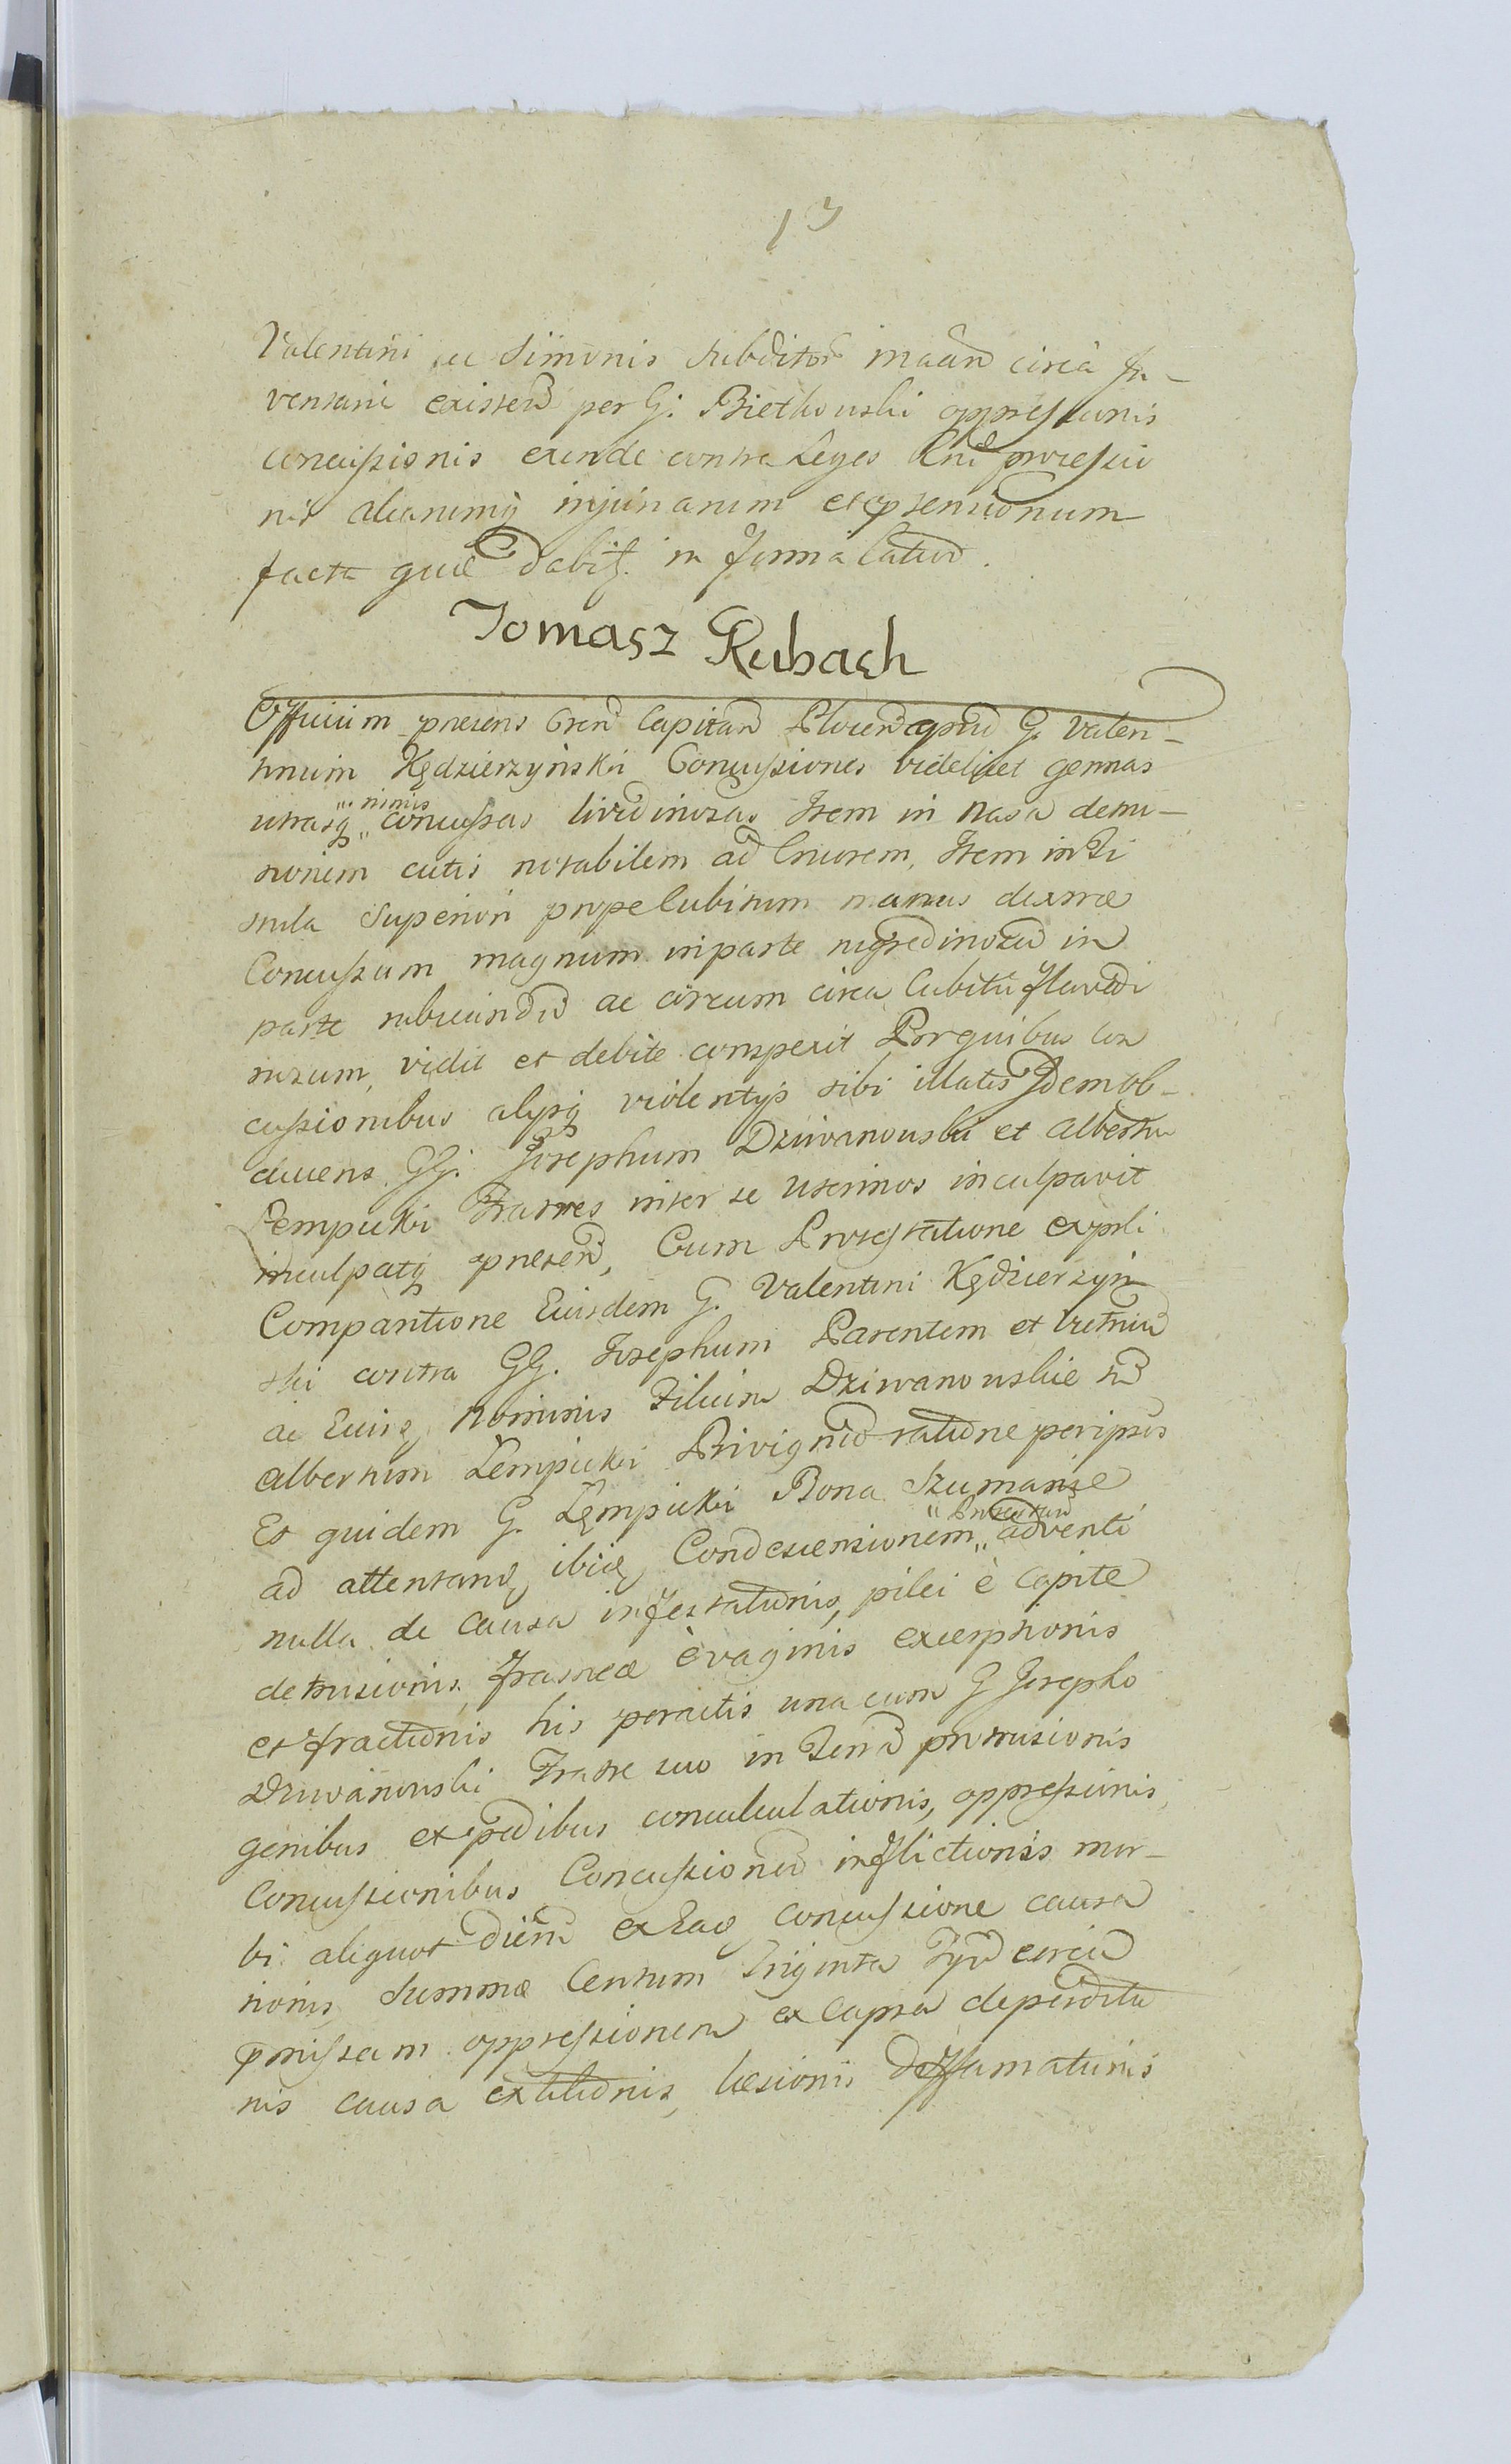 17
Valentini ac Simonis Subditor in aan circa In-
ventarie existen per G: Bietkowski oppressionis
concussionis exinde contra Leges Rni processio
nis aliarumq injuriarum et offensionum
facta quae dabit. in forma latiud.
Tomasz Rubach
Officium praesens Cren Capitan Plocen apud G. Valen-
tinum Kędzierzyński Concussiones videlicet gennas
utrasq „ nimis „ concussas lividinosas Item in Naso demi-
tionem cutis notabilem ad Cruorem, Item in Ti
stula Superiori prope Cubitum manus dextrae
Concussum magnum in parte nigredinosu in
parte rubicundu ac circum circa Cubitu flavedi
nosum, vidit et debite conspexit Pro quibus Con
cussionibus alysq violentys sibi illatis Idem Ob-
ducens GG: Josephum Dziwanowski et Albertu
Lempicki Fratres inter se Uterinos inculpavit
inculpatq presen, Cum Protestatione expsti
Comparitione Eiusdem G. Valentini Kędzierzyń
ski contra GG. Josephum Parentem et Vitricu
ac Eiusq Nominis Filium Dziwanowskie td
Albertum Lempicki Privignu ratione per ipsos
Et quidem G. Lempicki Bona Szumanie
ad attentang ibiq Condescensionem „ „ adventi
nulla de Causa infestationis, pilei è Capite
detrusionis, frameae è vaginis exceptionis
et fractionis his peractis una cum G Josepho
Dziwanowski Fratre suo in Terra protrusionis
genibus ex pedibus conculculationis, oppressionis,
Concussionibus Concussionu inflictionis mor-
bi aliquot dieru ex Eaq concussione causa
tionis, Summae Centum Triginta Tyn circa
pmissam oppressionem ex Capsa deperditu
nis causa extitionis, laesionis deffamationis